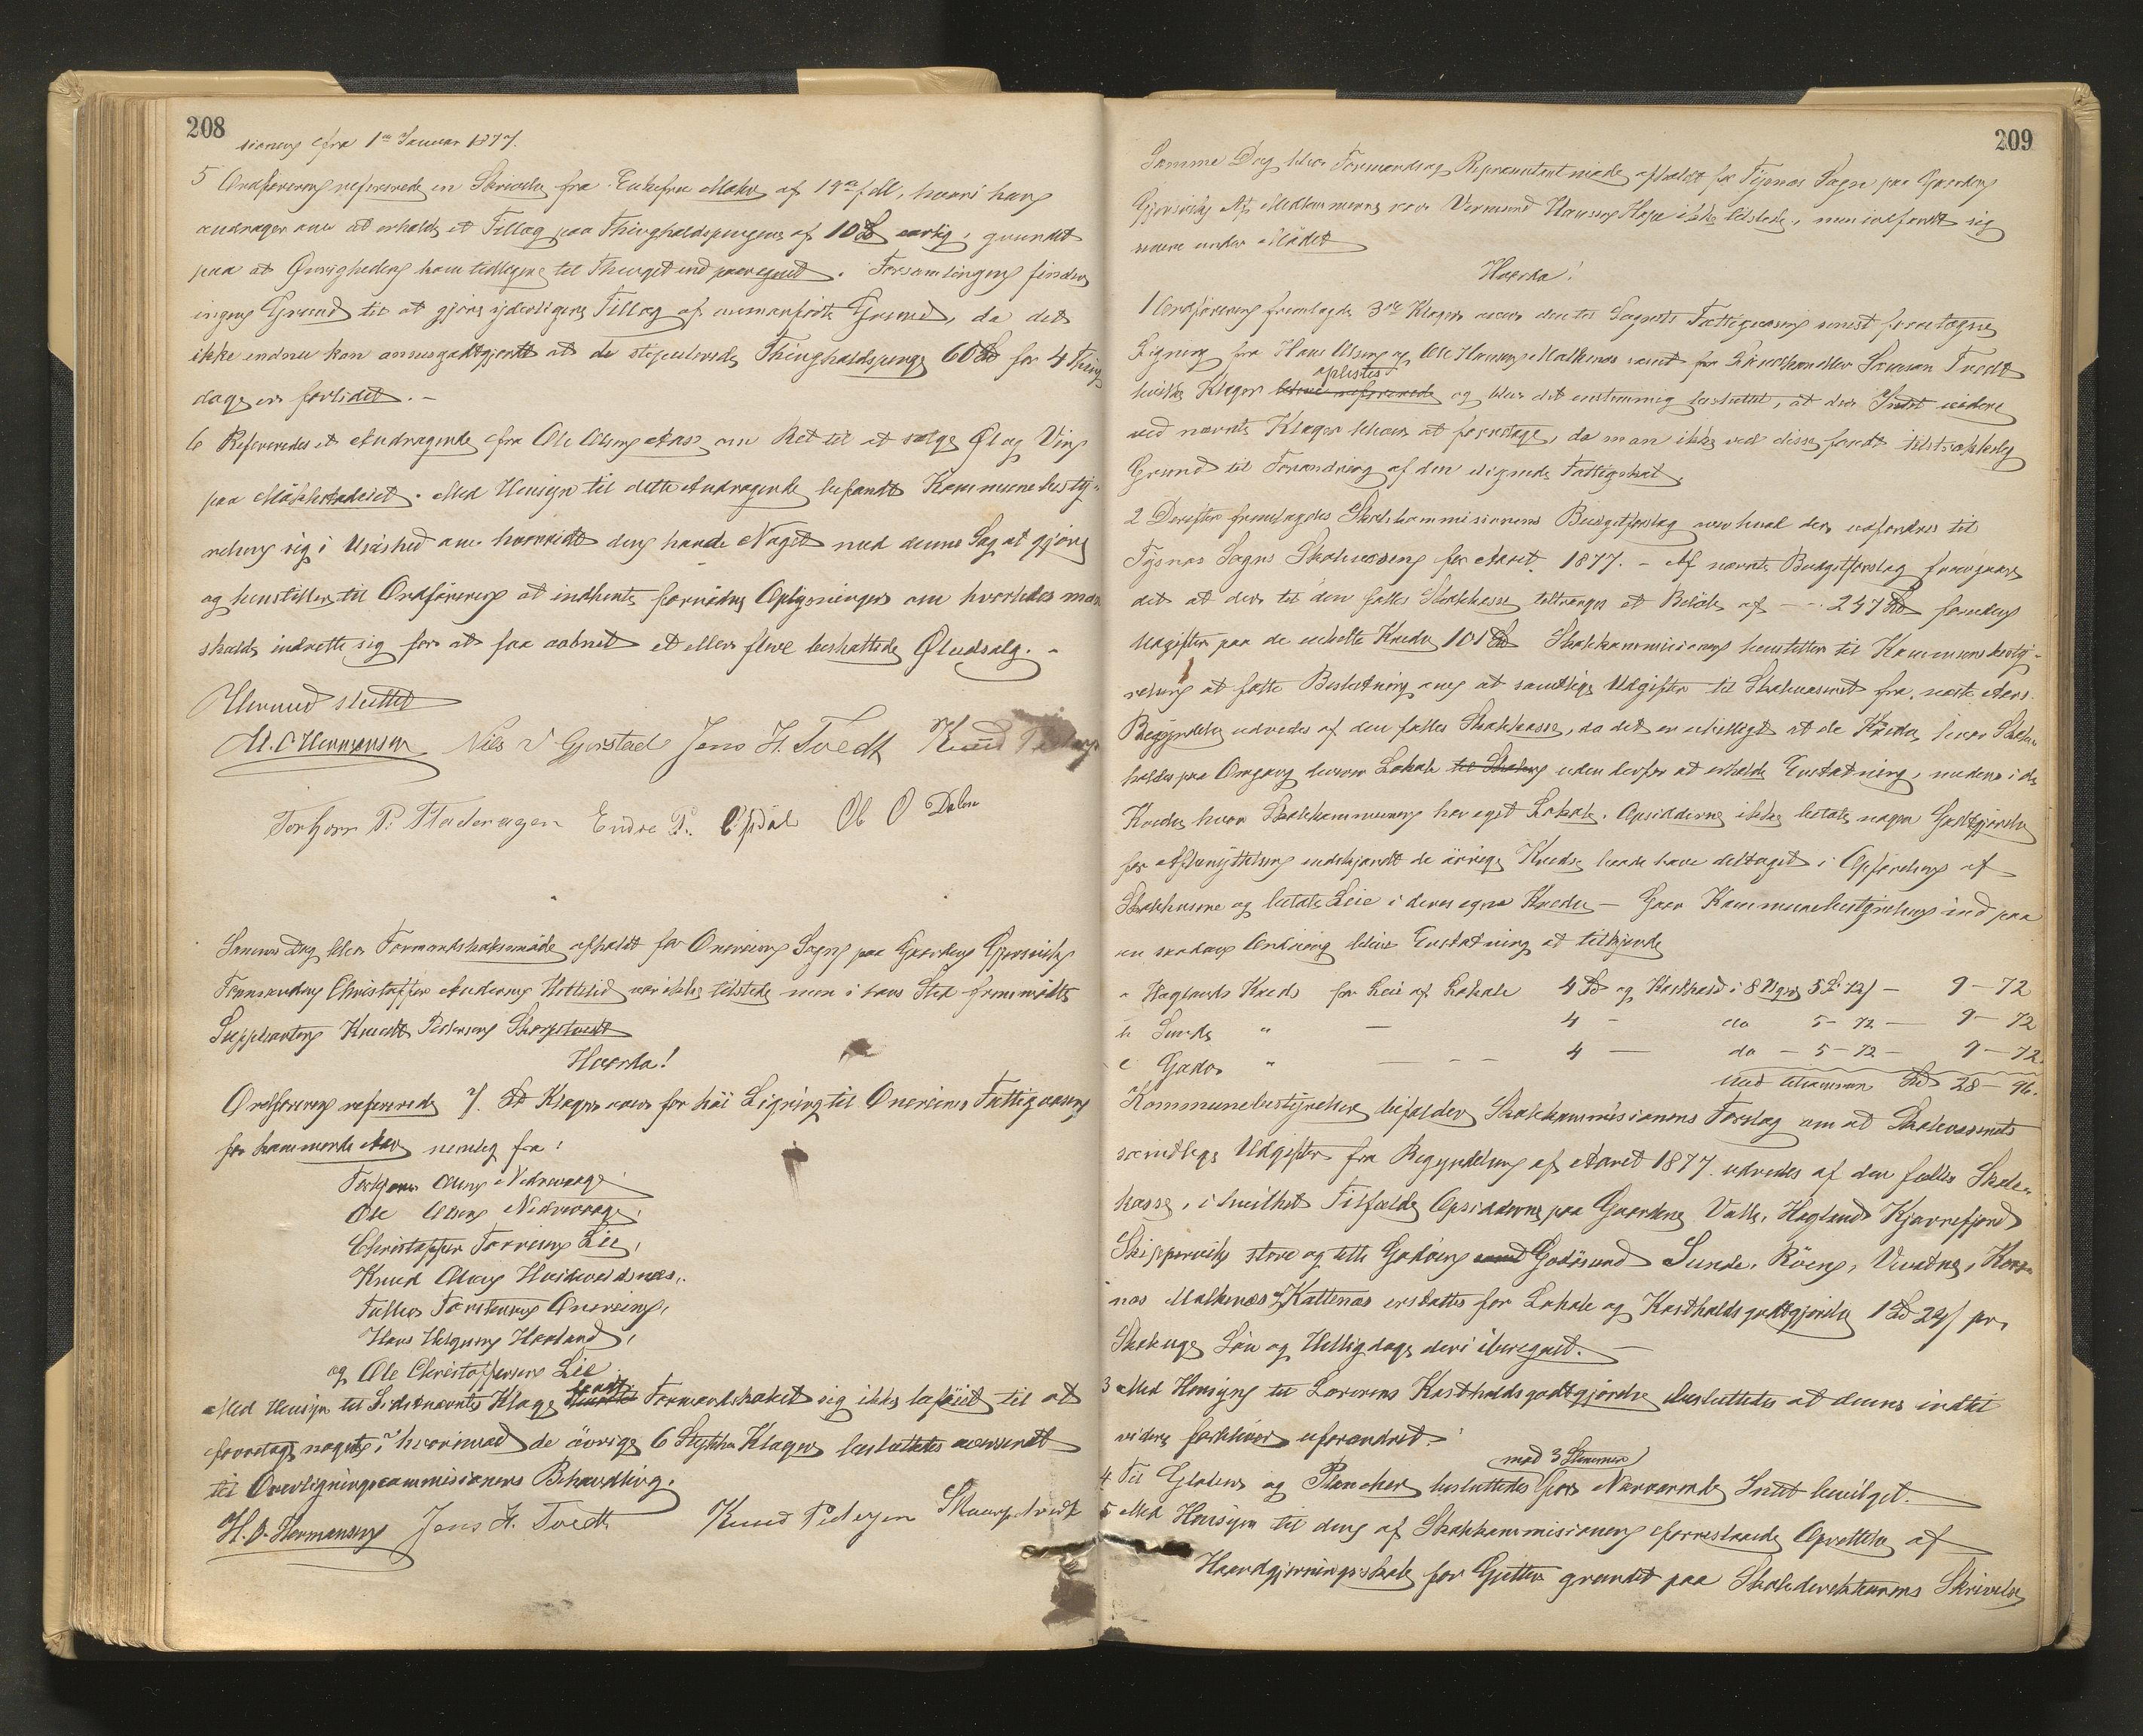 208
sionen fra 1ste Januar 1877.
5 Ordføreren refererede en Skrivelse fra Enkefru Mohn af 19de f. M, hvori hun
andrager om at erholde et Tillæg paa Thingholdspengene af 10 Spd aarlig, grundet
paa at Øvrigheden kom tidligere til Thinget end paaregnet. Forsamlingen finder
ingen Grund til at gjøre yderligere Tillæg af ommanførte Grund, da det
ikke endnu kan ansees godtgjort at de stipulerede Thingholdspenge 60 Spd for 4 Thing
dage er forlidet. -
6 Refereredes et Andragende fra Ole Olsen Aase om Ret til at sælge Øl og Vin
paa . Med Hensyn til dette Andragende befandt Kommunebesty-
relsen sig i Uvished om hvorvidt den havde Noget med denne Sag at gjøre
og henstiller til Ordføreren at indhente fornødne Oplysninger om hvorledes man
skulde indrette sig for at faa aabnet et eller flere beskattede Øludsalg. -
Hermed sluttet
H. O Hermansen Nils N Gjerstad Jens H. Tvedt Knud
Torbjørn P. Fladeragen Endre P. Opdal Ole O Dalen
Samme Dag blev Formandskabsmøde afholdt for Onereims Sogn paa Gaarden Gjersvik
Formanden Christoffer Andersen Hottelid var ikke tilstede men i hans Sted fremmødte
Suppleanten Knudt Pedersen Skarpetvedt
Hvorda!
Ordføreren refererede 7 Klager over for høi Ligning til Onereims Fattigvæsen
for kommende Aar nemlig fra:
Torbjørn Olsen Nedrevaage
Ole Olsen Nedrevaage,
Christoffer Torresen Lie,
Knud Olsen Hvidevoldsnæs,
Tollev Torstensen Onereim,
Hans Helgesen Haaland,
og Ole Christoffersen Lie.
Med Hensyn til Sidstnævntes Klage fandt Formandskabet sig ikke beføiet til at
foretage noget, hvorimod de øvrige 6 Stykker Klager besluttedes oversendt
til Overligningscommisionens Behandling.
H. O. Hermansen Jens H. Tvedt Knud Pedersen Skarpetvedt
209
Samme Dag blev Formands og Repræsentantmøde afholdt for Tysnæs Sogn paa Gaarden
Gjersvik. Af Medlemmerne var Vermund Hansen Hope ikke tilstede, men indfandt sig
senere under Mødet
Hvorda!
1 Ordføreren fremlagde 3de Klager over den til Sognets Fattigvæsen senest foretagne
Ligning fra Hans Olsen og Ole Hansen Malkenæs samt fra Landhandler Samson Tvedt
oplæstes
hvilke Klager blev refererede og blev det enstemmig besluttet, at der Intet videre
ved nævnte Klager bliver at foretage, da man ikke ved disse fandt tilstrækkelig
Grund til Forandring af den udlignede Fattigskat.
2 Derefter fremlagdes Skolekommisionens Budgetforslag over hvad der udfordres til
Tysnæs Sogns Skolevæsen for Aaret 1877. - Af nævnte Budgetforslag fremgaar
det at der til den fælles Skolekasse tiltrænges et Beløb af -- 247 Spd foruden
Udgifter paa de enkelte Kredse 101 Spd Skolekommisionen henstiller til Kommunebesty-
relsen at fatte Beslutning om at samtlige Udgifter til Skolevæsenet fra næste Aars
Begyndelse udredes af den fælles Skolekasse, da det er ubilligt at de Kredse, hvor Skolen
holdes paa Omgang levere Lokale til Skolen uden derfor at erholde Erstatning, medens i de
Kredse hvor Skolekommunen har eget Lokale, Opsidderne ikke betale nogen Godtgjørelse
for Afbenyttelsen endskjøndt de øvrige Kredse baade have deltaget i Opførelsen af
Skolehusene og betale Leie i deres egne Kredse - Gaar Kommunebestyrelsen ind paa
en saadan Ordning bliver Erstatning at tilkjende
a Haglands Kreds for Leie af Lokale 4 Spd og Kosthold i 8 Uger 5 Spd 72 - 9 - 72
b Sunde " - 4 - do 5 - 72 - 9 - 72
c Godøs " - - - 4 - do - 5 - 72 - 9 - 72.
tilsammen Spd 28 - 96.
Kommunebestyrelsen bifalder Skolekommisionens Forslag om at Skolevæsenets
samtlige Udgifter fra Begyndelsen af Aaret 1877 udredes af den fælles Skole-
kasse, i hvilket Tilfælde Opsidderne paa Gaardene Valle, Hagland Kjærrefjord
Skippervik store og lille Godøen samt Godøsund Sunde, Røen, Vevatne, Kors-
næs Malkenæs og Kattenæs erstattes for Lokale og Kostholdsgodtgjørelse 1 Spd 24 pr.
Skoleuge Søn og Helligdage deri iberegnet. -
3 Med Hensyn til Lærerens Kostholdsgodtgjørelse besluttedes at denne indtil
videre forbliver uforandret.
med 3 Stemmer
4 Til Globus og Plancher besluttedes for Nærværende Intet bevilget.
5 Med Hensyn til den af Skolekommisionen foreslaaede Oprettelse af
Haandgjerningsskole for Gutter grundet paa Skoledirekteurens Skrivelse